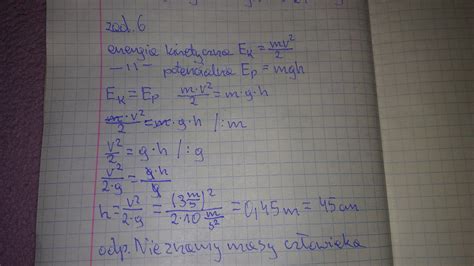 zad. 6
energia kinetyczna E_K = mv²/2
—11— potencjalna E_P = mgh
E_K = E_P m·v²/2 = m·g·h
m·v²/2 = m·g·h /:m
v²/2 = g·h /:g
v²/2·g = g·h/g
h = v²/2·g = (3 m/s)²/2·10 m/s² = 0,45m = 45cm
odp. Nie znamy masy człowieka